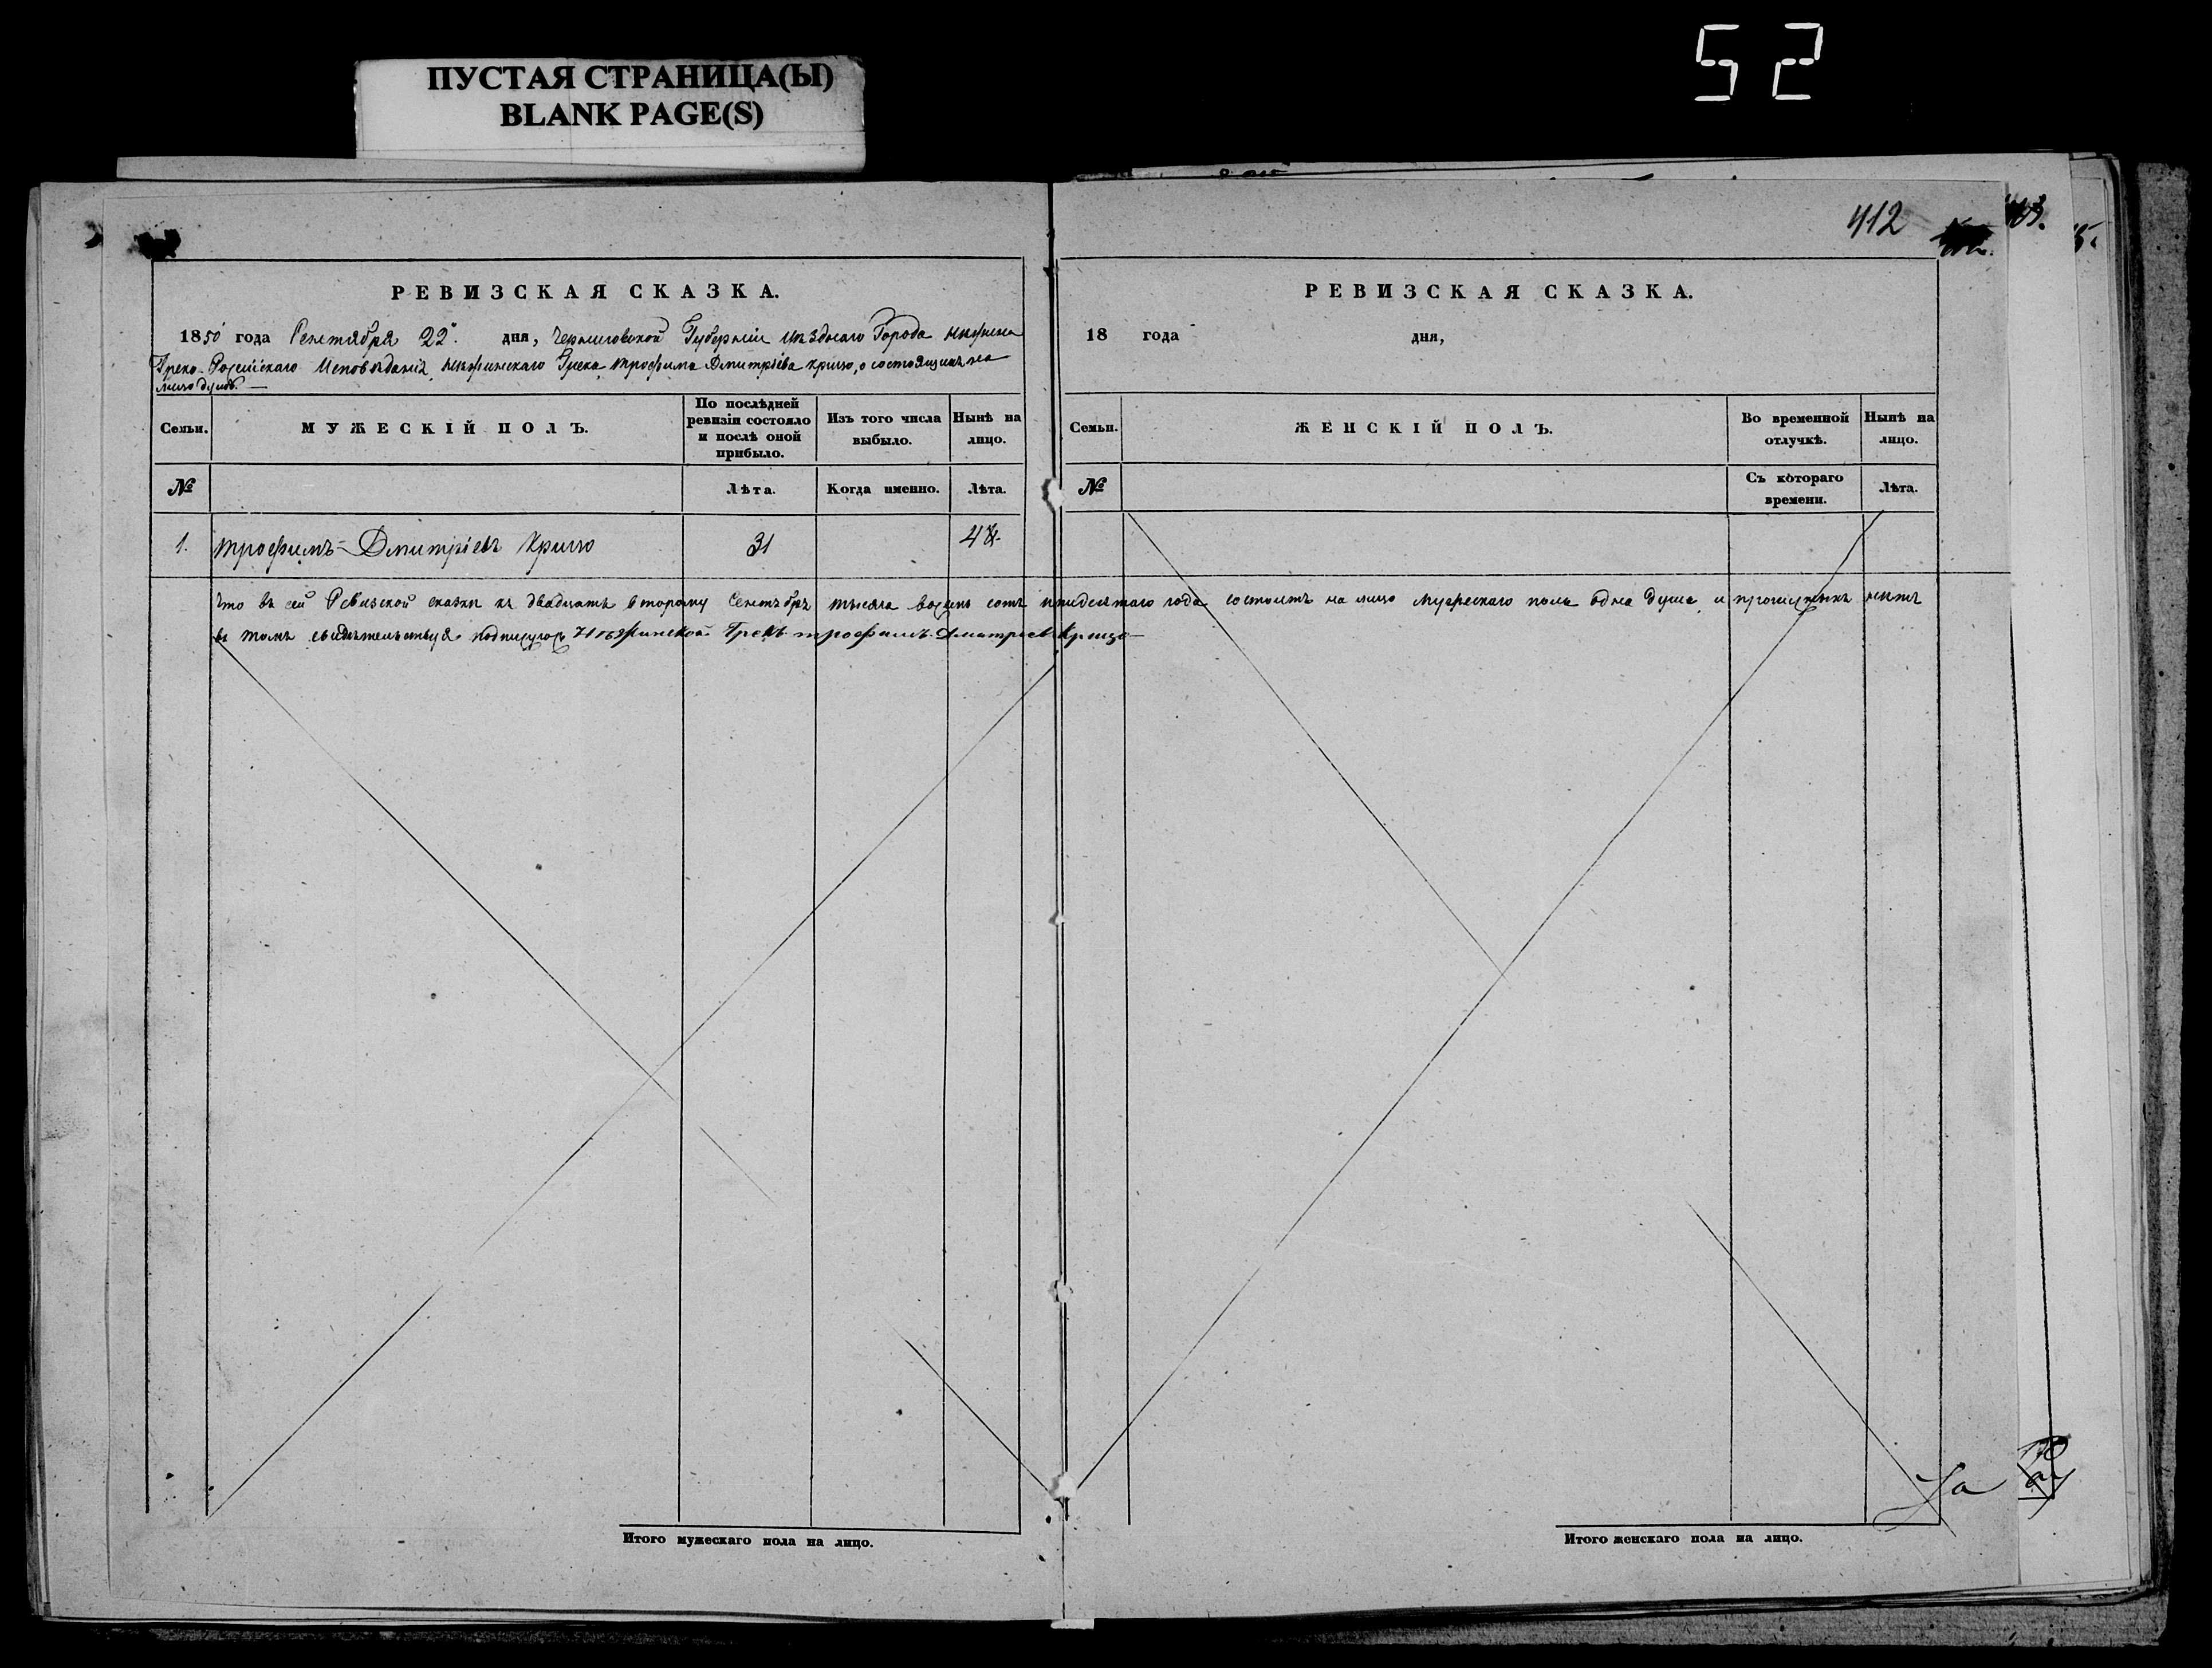 ПУСТАЯ СТРАНИЦА(Ы)
BLANK PAGE(S)
52
412
РЕВИЗСКАЯ СКАЗКА.
1850 года Сентября 22 дня, Черниговской Губерніи Уѣзднаго Города Нѣжина
Греко-Россійскаго Исповѣданія Нѣжинскаго Грека Трофима Дмитріева Крицо, о состоящихъ на
лицо душъ.
Семьи.
МУЖЕСКІЙ ПОЛЪ.
По послѣдней
ревизіи состояло
и послѣ оной
прибыло.
Изъ того числа
выбыло.
Нынѣ на
лицо.
№
Лѣта.
Когда именно.
Лѣта.
1. Трофимъ Дмитріевъ Крицо 31
РЕВИЗСКАЯ СКАЗКА.
18 года дня,
Семьи.
ЖЕНСКІЙ ПОЛЪ.
Во временной
отлучкѣ.
Нынѣ на
лицо.
№
Съ котораго
времени.
Лѣта.
Что въ сей Ревизской сказки къ двадцать второму Сентябрѣ тысяча восемь сотъ пятидесятаго года состоитъ на лицо мужескаго пола одна душа и прописныхъ нѣтъ
въ томъ свидѣтельствуя подпишусь Нѣжинской Грекъ трофимъ Дматріевъ Крицо
Итого мужескаго пола на лицо.
Итого женскаго пола на лицо.